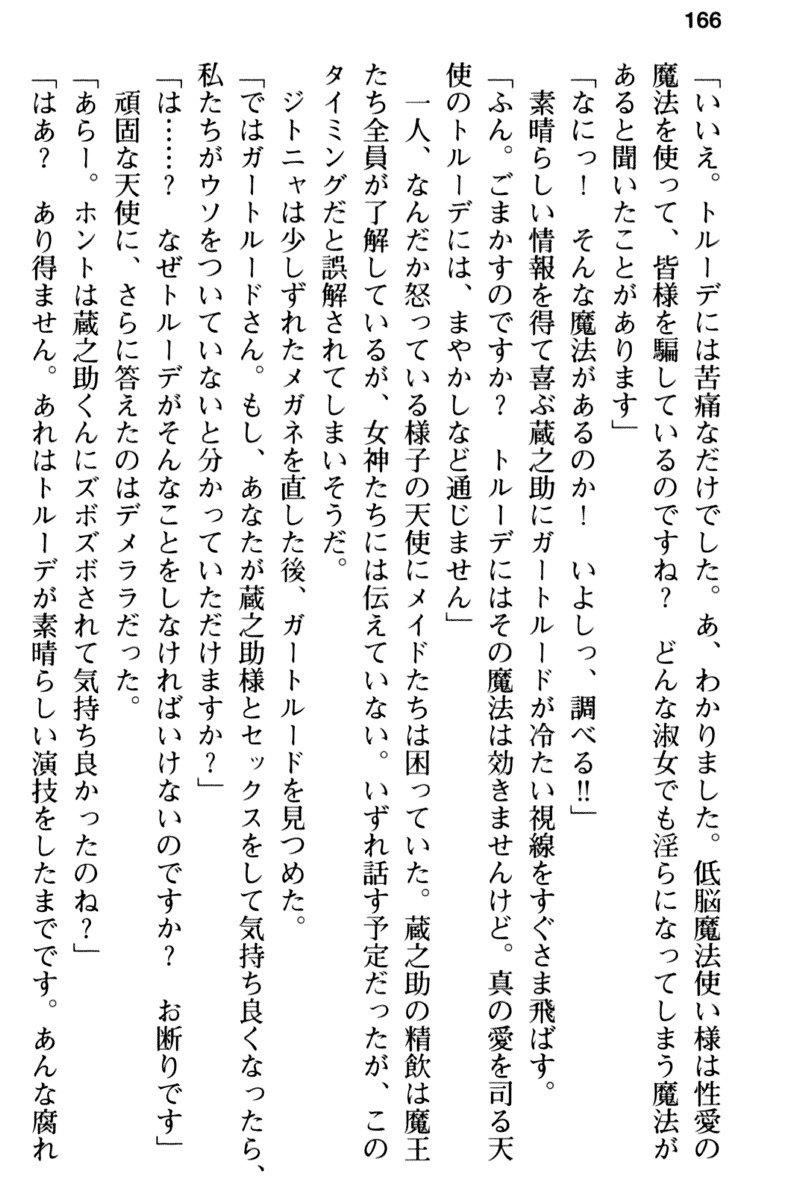 166
「いいえ。トルーデには苦痛なだけでした。あ、わかりました。低脳魔法使い様は性愛の
魔法を使って、皆様を騙しているのですね？　どんな淑女でも淫らになってしまう魔法が
あると聞いたことがあります」
「なにっ！　そんな魔法があるのか！　いよしっ、調べる!!」
　素晴らしい情報を得て喜ぶ蔵之助にガートルードが冷たい視線をすぐさま飛ばす。
「ふん。ごまかすのですか？　トルーデにはその魔法は効きませんけど。真の愛を司る天
使のトルーデには、まやかしなど通じません」
　一人、なんだか怒っている様子の天使にメイドたちは困っていた。蔵之助の精飲は魔王
たち全員が了解しているが、女神たちには伝えていない。いずれ話す予定だったが、この
タイミングだと誤解されてしまいそうだ。
　ジトニャは少しずれたメガネを直した後、ガートルードを見つめた。
「ではガートルードさん。もし、あなたが蔵之助様とセックスをして気持ち良くなったら、
私たちがウソをついていないと分かっていただけますか？」
「は……？　なぜトルーデがそんなことをしなければいけないのですか？　お断りです」
　頑固な天使に、さらに答えたのはデメララだった。
「あらー。ホントは蔵之助くんにズボズボされて気持ち良かったのね？」
「はあ？　あり得ません。あれはトルーデが素晴らしい演技をしたまでです。あんな腐れ